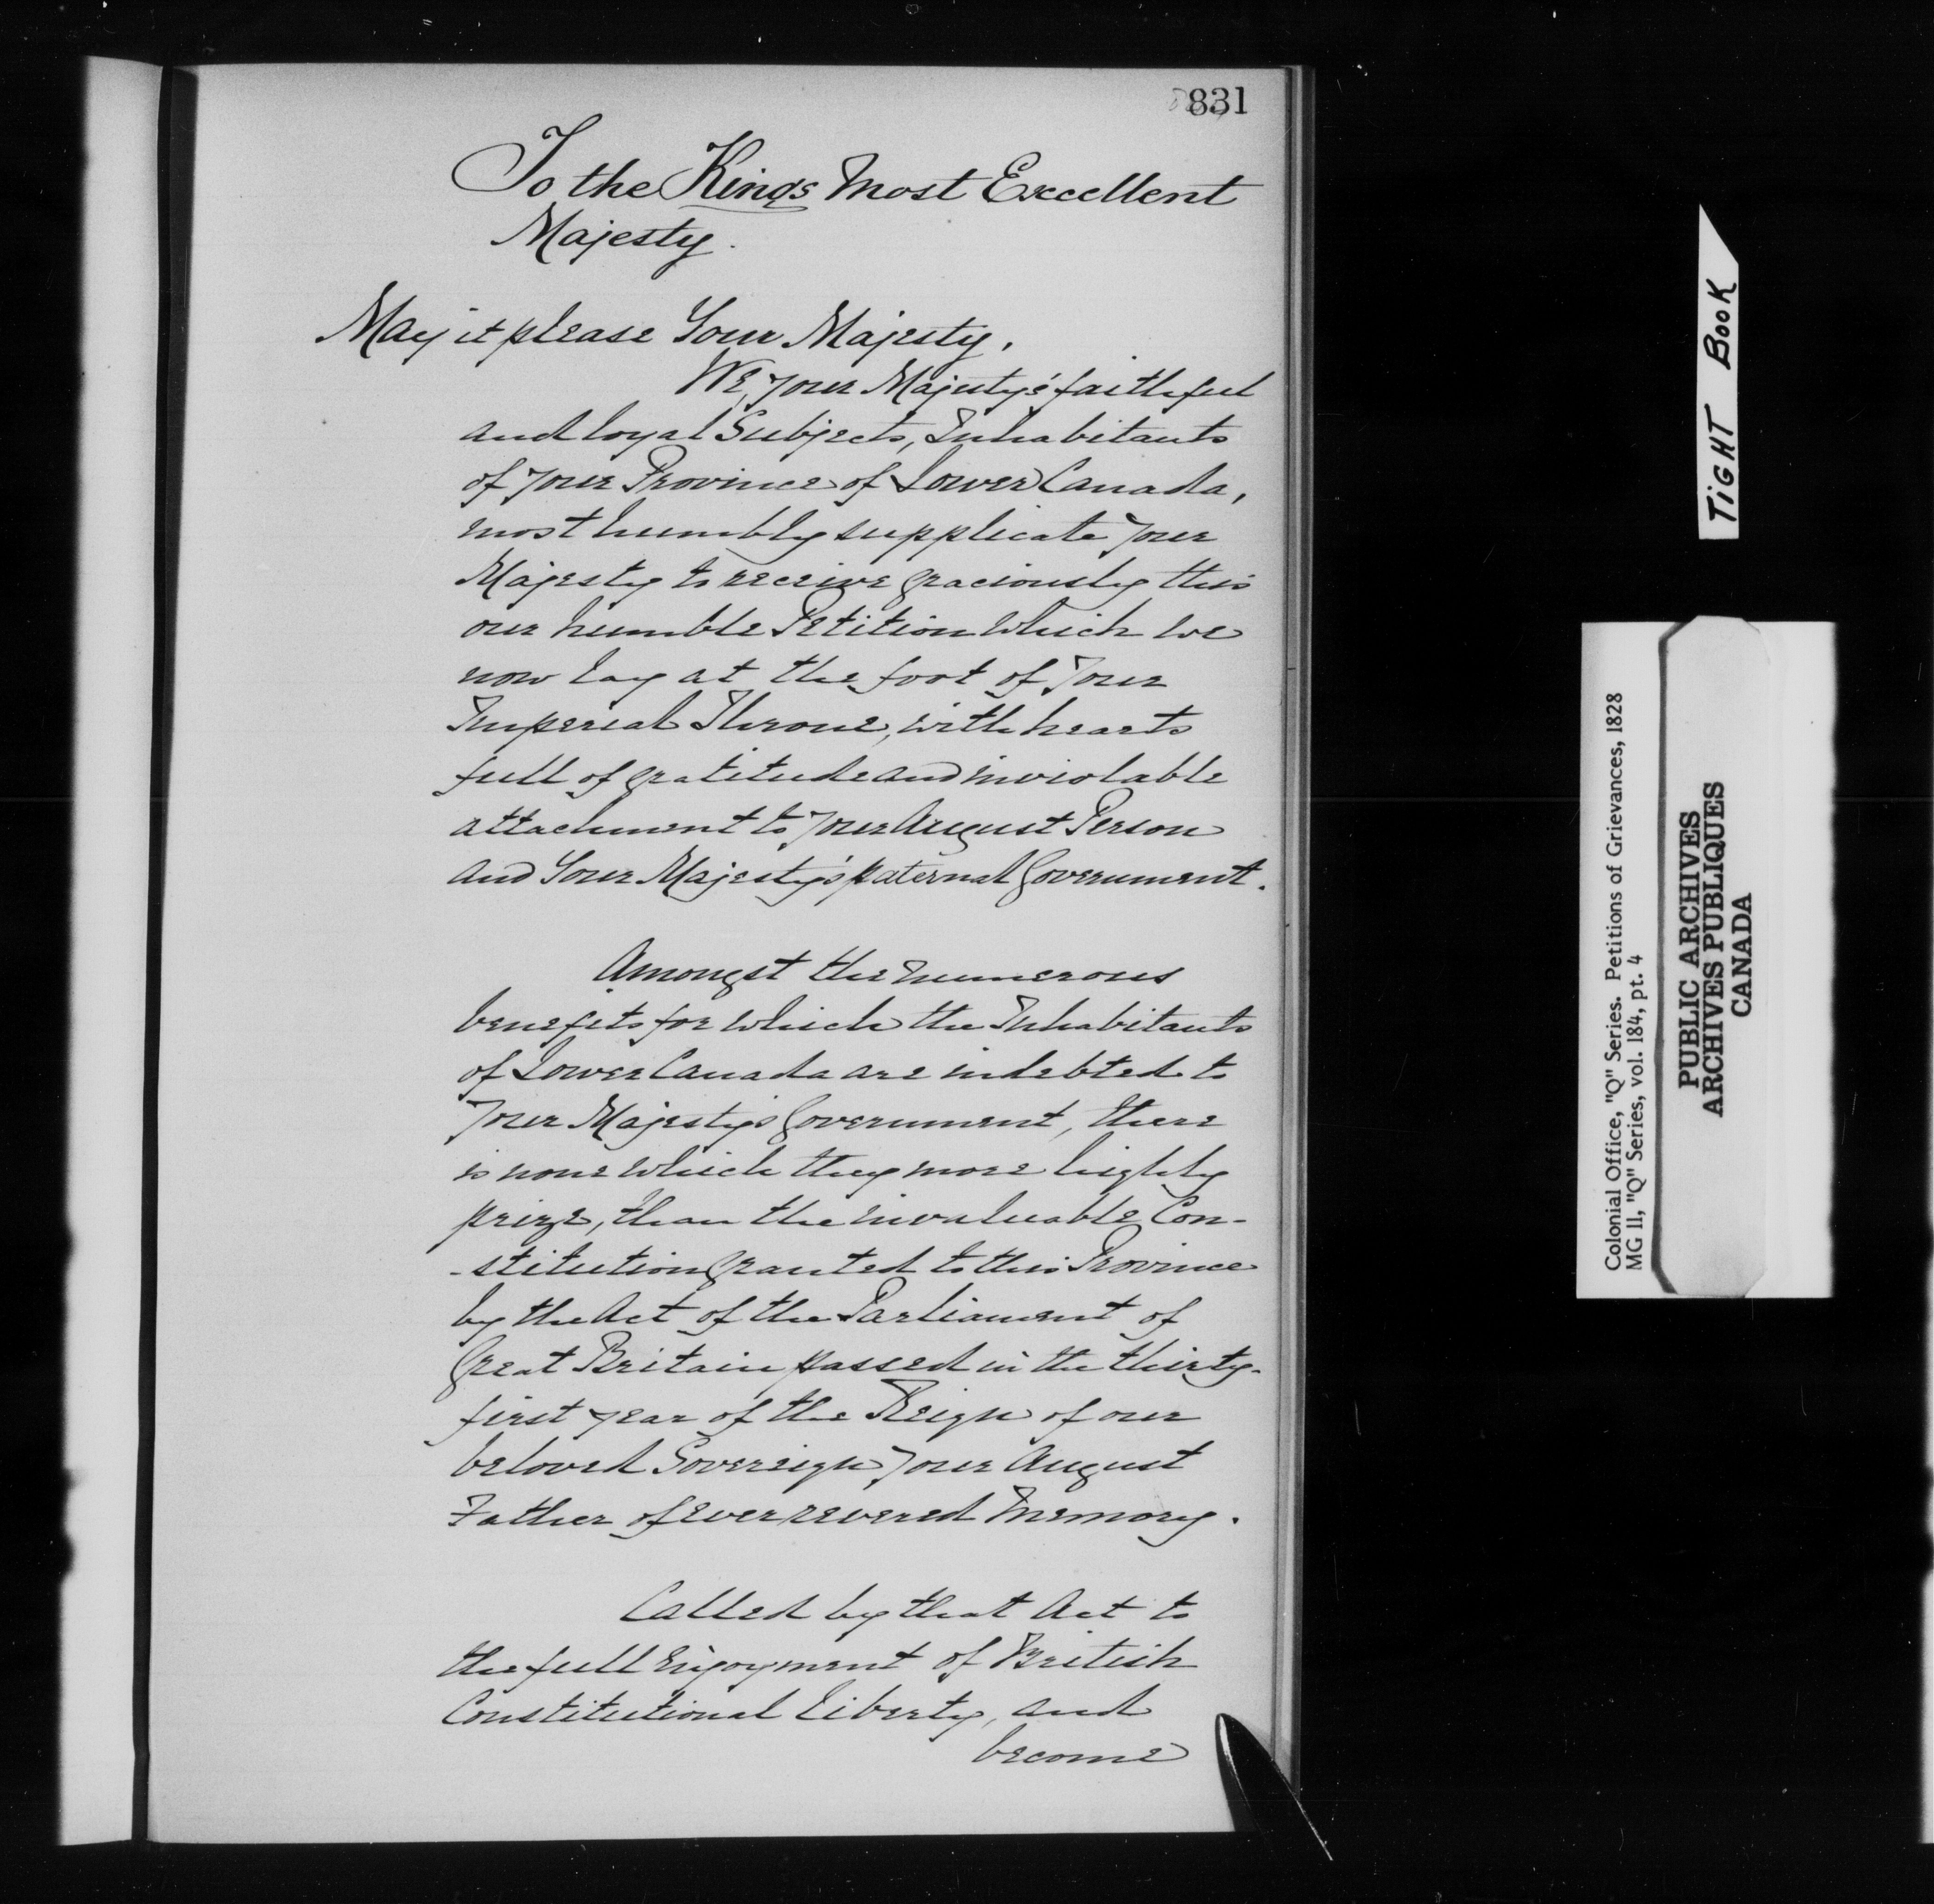 831
To the Kings Most Excellent
Majesty.
May it please Your Majesty,
We, your Majesty's faithful
and loyal Subjects, Inhabitants
of your Province of Lower Canada,
most humbly supplicate your
Majesty to receive graciously this
our humble Petition which we
now lay at the foot of Your
Imperial Throne, with hearts
full of gratitude and inviolable
attachment to your August Person
and Your Majesty's paternal Government.
Amongst the numerous
benefits for which the Inhabitants
of Lower Canada are indebted to
Your Majesty's Government, there
is none which they more highly
prize, than the invaluable Con-
-stitution granted to this Province
by the Act of the Parliament of
Great Britain passed in the thirty-
first year of the Reign of our
beloved Sovereign your August
Father of ever revered Memory.
Called by that Act to
the full Enjoyment of British
Constitutional liberty, and
become
TIGHT BOOK
Colonial Office, "Q" Series. Petitions of Grievances, 1828
MG 11, "Q" Series, vol. 184, pt. 4
PUBLIC ARCHIVES
ARCHIVES PUBLIQUES
CANADA